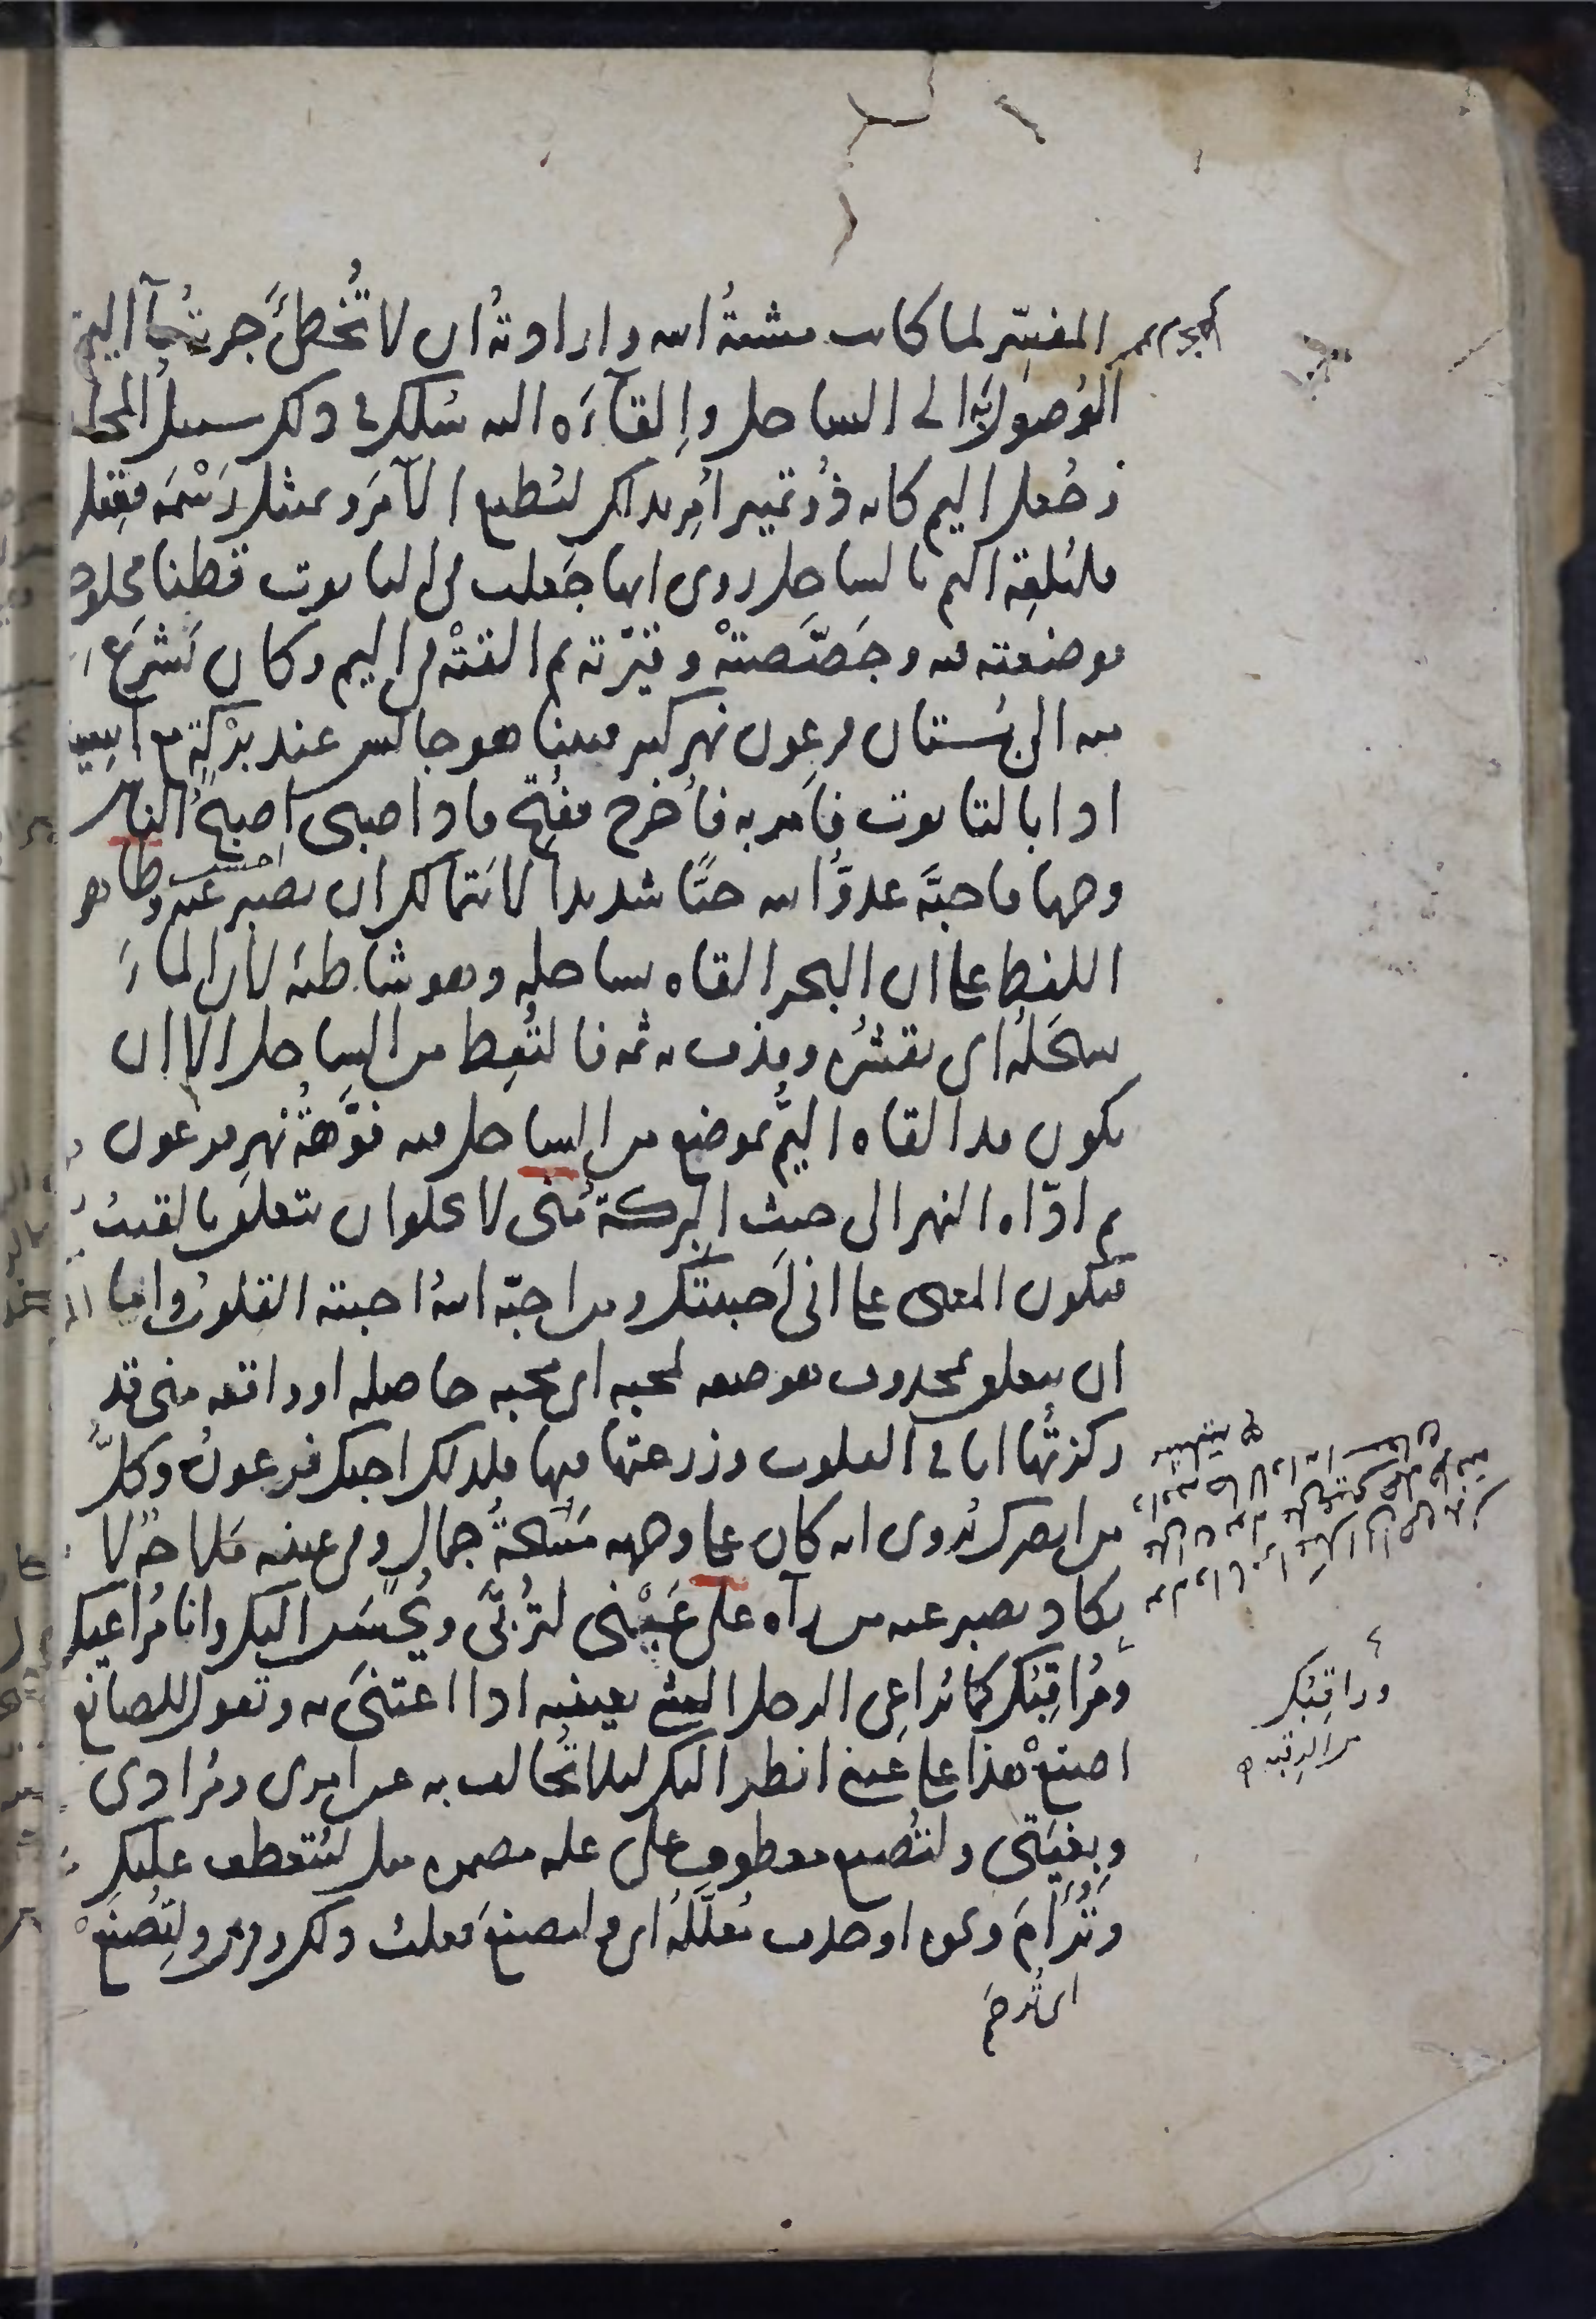 المفسّر لما كانت مشيئةُ الله وارادتهُ ان لا تُخطئَ جريةُ مآء اليمّ
الوُصولَ به الى الساحل وإلقآءَه اليه سُلك فى ذلك سبيلُ المجاز
وجُعل اليم كانه ذُو تمييز اُمِر بذلك ليُطيع الآمرَ ويمتثل رَسْمَه فقيل
فليُلقِه اليم بالساحل روى انها جَعلت فى التابوت قطنا محلوجا
فوضعته فيه وجَصَّصتْهُ وقيّرته ثم القتْه فى اليم وكان يَشرَع
منه الى بُستان فرعون نهر كبير فبينا هو جالس عند بِرْكةٍ مع آسية
اذا بالتابوت فاَمر به فاُخرج ففُتح فاذا صبى اصبحُ الناس
وجها فاحبَّه عدوُّ الله حبًّا شديدا لا يتمالك ان يصبر عنه وظاهر
اللفظ على ان البحر القاه بساحله وهو شاطئه لان الماءَ
يسحَلُه اى يقشُره وقذف به ثمه فالتُقِط من الساحل الا ان
يكون قد القاه اليمُّ بموضع من الساحل فيه فُوَّهةُ نهرِ فرعون
ثم ادّاه النهر الى حيث البركة مِنّى لا يخلو ان يتعلق بالقيتُ
فيكون المعنى على انى اَحببتُك ومن احبّه اللهُ احبّته القلوبُ واما
ان يتعلق بمحذوف هو صفه لمحبه اى محبه حاصله او واقعه منى قد
ركزتُها انا فى القلوب وزرعتها فيها فلذلك احبك فرعونُ وكلُّ
من ابصرك رُوى انه كان على وجهه مَسْحَةُ جمال وفى عينيه مَلاحَةٌ لا
يكاد يصبر عنه من رآه على عَيْنى لتُربَّى ويُحسَن اليك وانا مُراعيك
ومُراقِبُك كما يُراعِى الرجل الشئ بعينيه اذا اعتنَى به وتقول للصانع
اصنعْ هذا على عينى انظر اليك ليلا تُخالف به عن امرى ومُرادى
وبِغْيَتى ولتُصنع معطوف على عله مضمره مثل ليُتعطف عليك
وتُرْأَمَ ونحوه او حذف مُعلَّلُه اى ولتصنعَ فعلتُ ذلك وقرئ ولِتُصْنَعْ
اى تُرحَم
وراقِبُك
من الرقبه